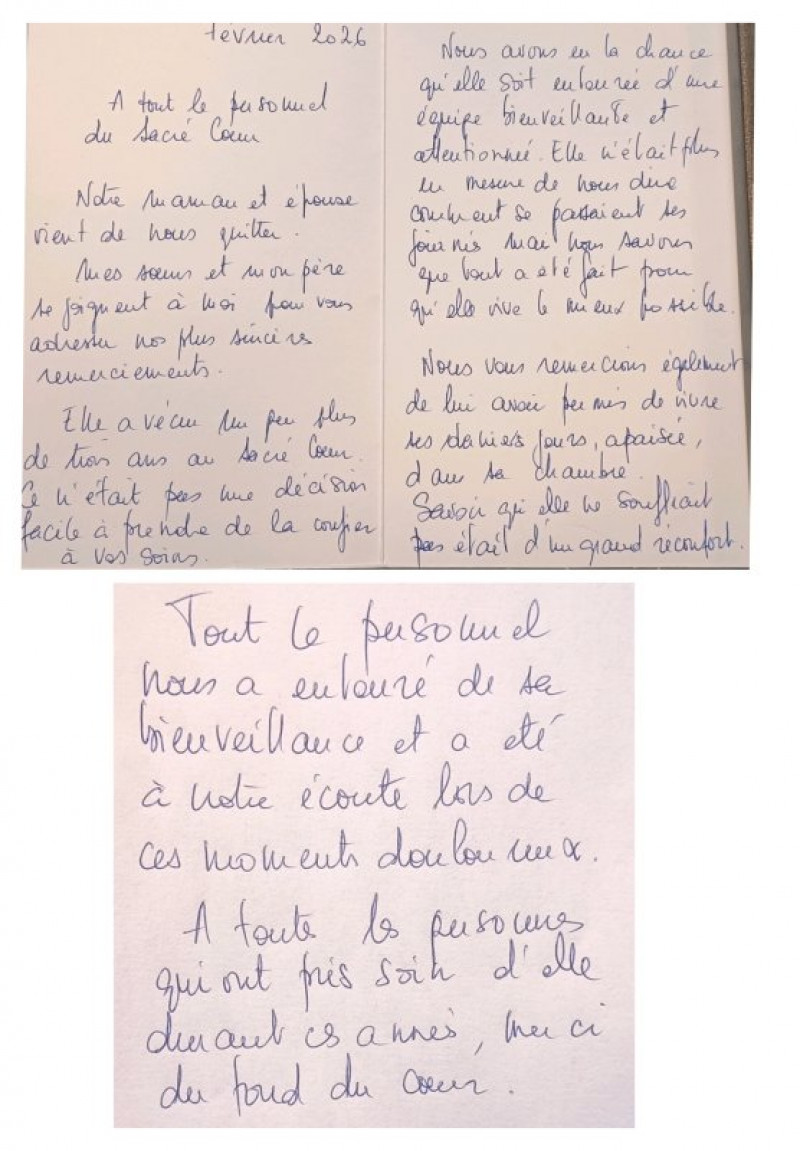 février 2026
A tout le personnel
du Sacré Cœur
Notre maman et épouse
vient de nous quitter.
Mes sœurs et mon père
se joignent à moi pour vous
adresser nos plus sincères
remerciements.
Elle a vécu un peu plus
de trois ans au Sacré Cœur.
Ce n'était pas une décision
facile à prendre de la confier
à vos soins.
Nous avons eu la chance
qu'elle soit entourée d'une
équipe bienveillante et
attentionnée. Elle n'était plus
en mesure de nous dire
comment se passaient ses
journées mais nous savons
que tout a été fait pour
qu'elle vive le mieux possible.
Nous vous remercions également
de lui avoir permis de vivre
ses derniers jours, apaisée,
dans sa chambre.
Savoir qu'elle ne souffrait
pas était d'un grand réconfort.
Tout le personnel
nous a entouré de sa
bienveillance et a été
à notre écoute lors de
ces moments douloureux.
A toute les personnes
qui ont pris soin d'elle
durant ces années, merci
du fond du cœur.